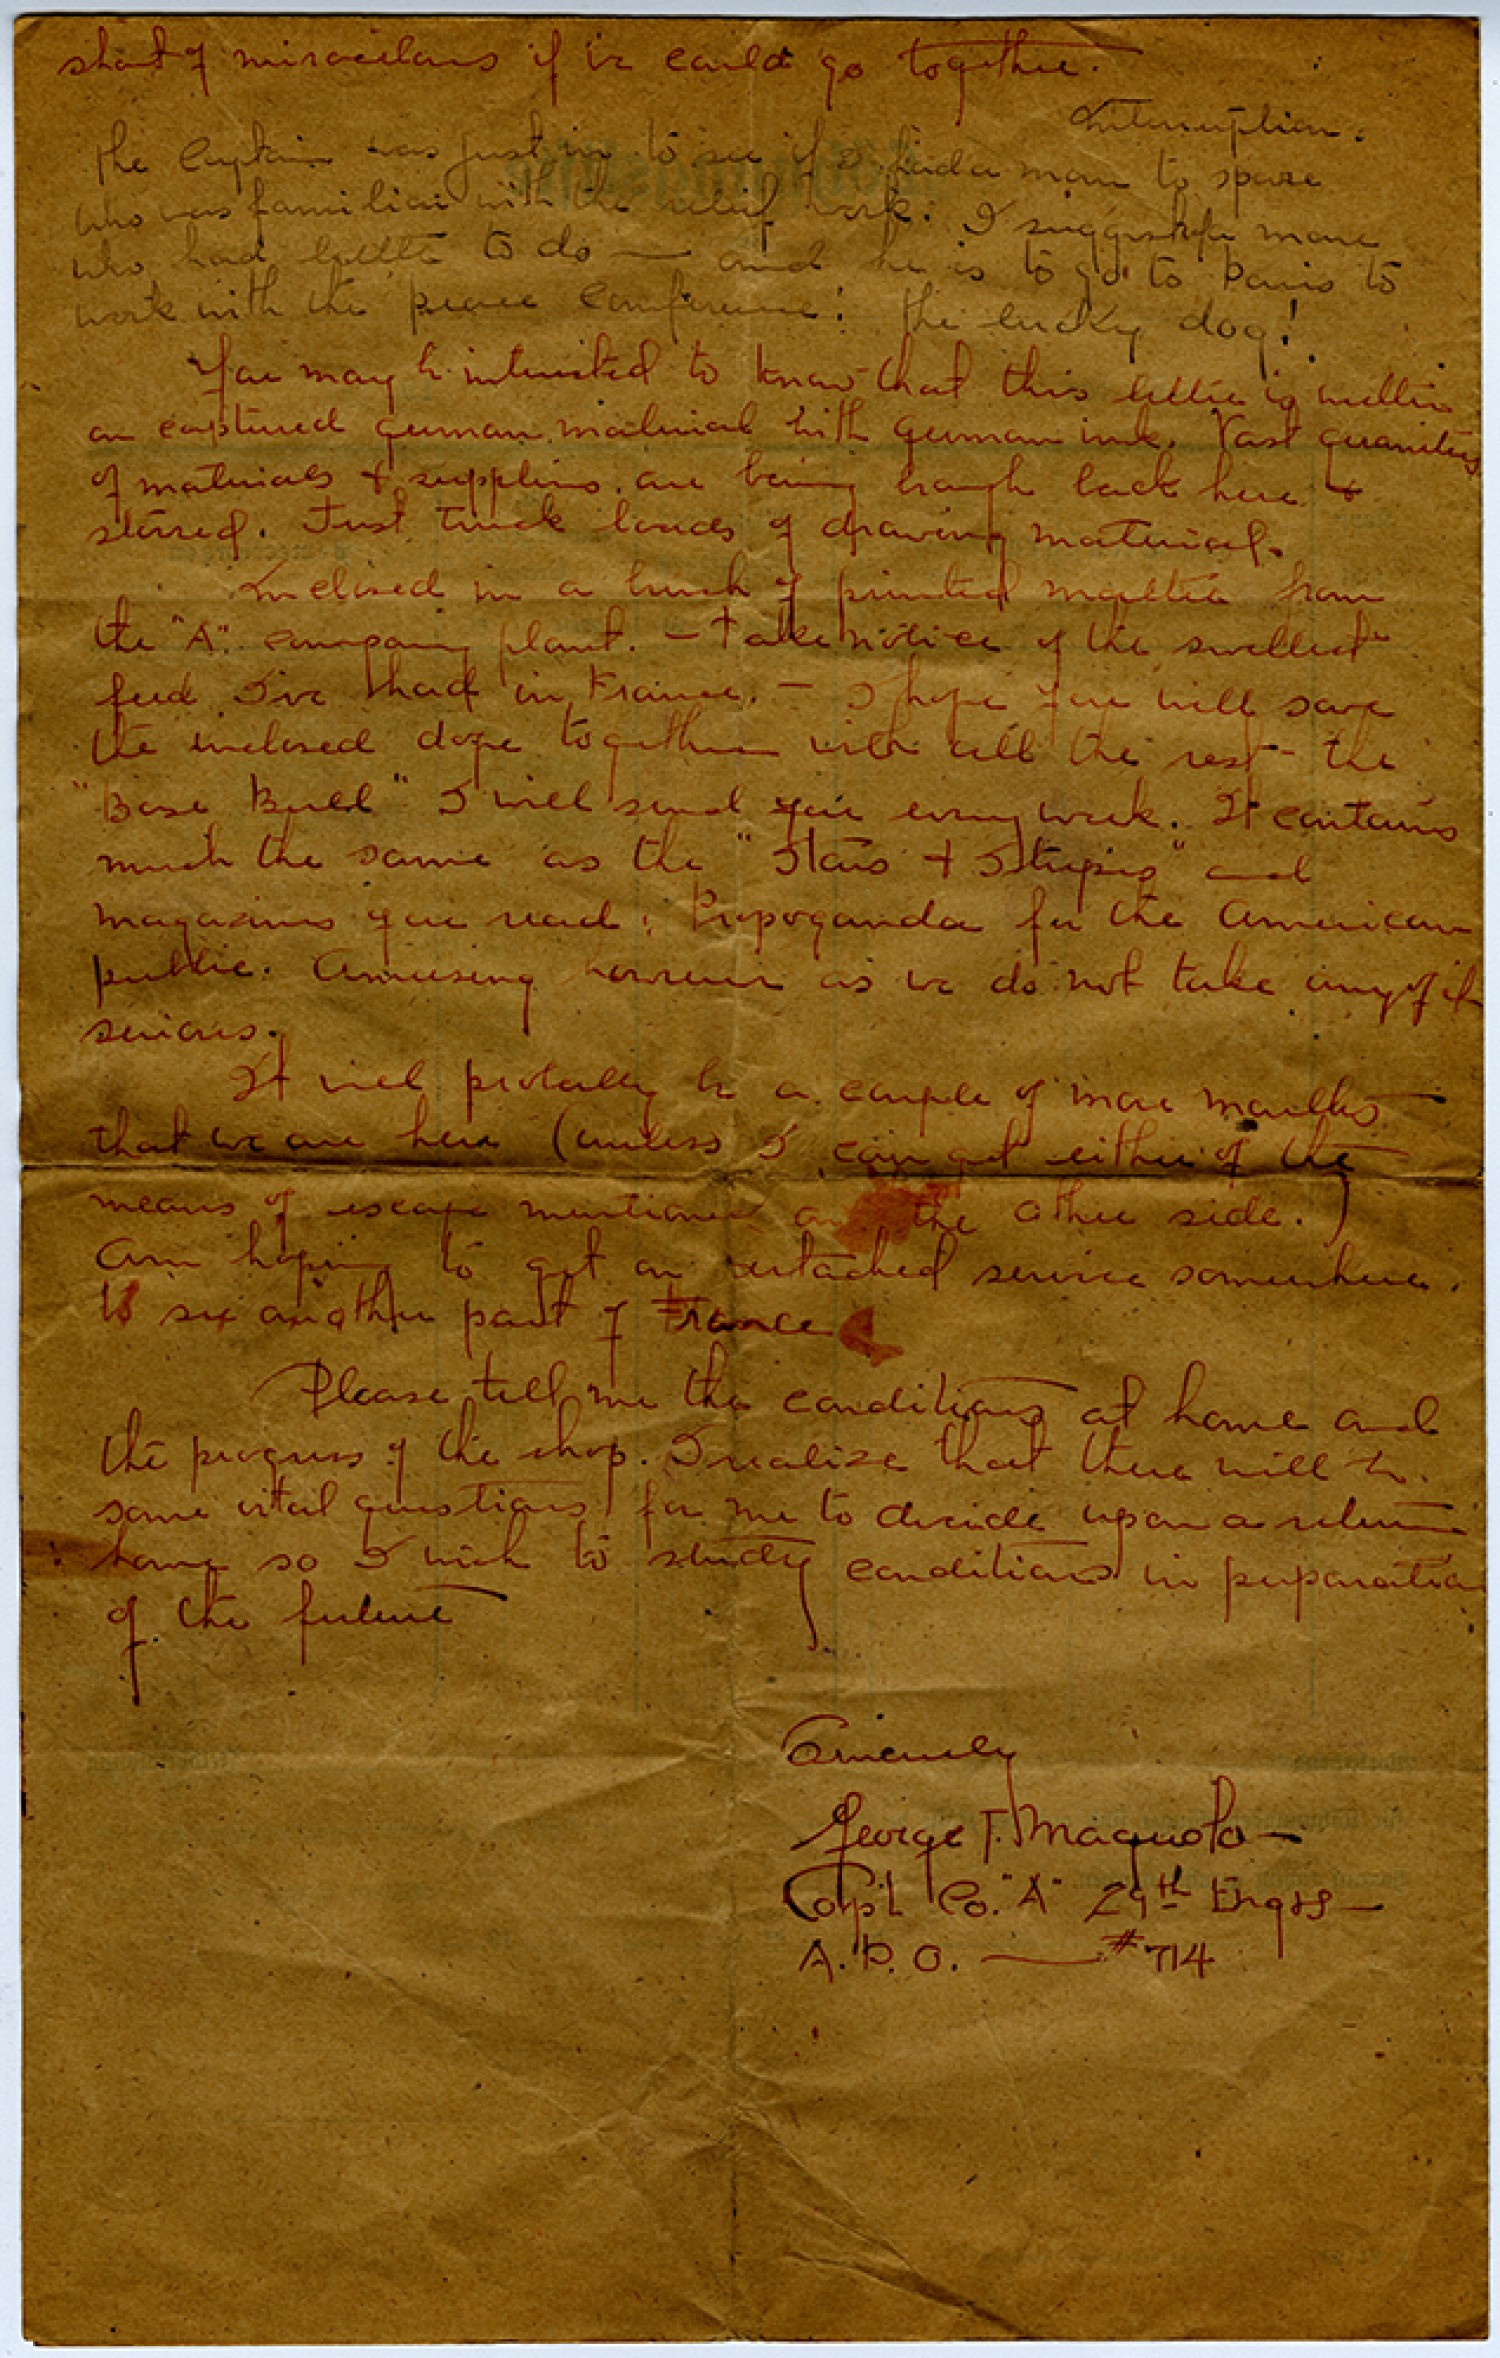 short of miraculous if we could go together.
Interruption.
The Captain was just in to see if I had a man to spare
who was familiar with the relief work. I suggested a man
who had little to do — and he is to go to Paris to
work with the peace conference! The lucky dog!
You may be interested to know that this letter is written
on captured german material with german ink. Vast quanities
of materials & supplies are being brough back here &
stored. Just truck loads of drawing material.
Inclosed in a bunch of printed matter from
the "A" company plant. — Take notice of the swellest
feed I've had in France. — I hope you will save
the inclosed dope together with all the rest - the
"Base Bull" I will send you every week. It contains
much the same as the "Stars & Stripes" and
magazines you read: Propoganda for the American
public. Amusing however as we do not take any of it
serious.
It will probally be a couple of more months
that we are here (unless I can get either of the
means of escape mentioned on the other side.)
Am hoping to get on detached service somewhere.
to see another part of France
Please tell me the conditions at home and
the progress of the shop. I realize that there will be
some vital questions for me to decide upon a return
home so I wish to study conditions in preparation
of the future
Sincerely
George T.
Co. "A" 29th Engrs
A.P.O. — #714